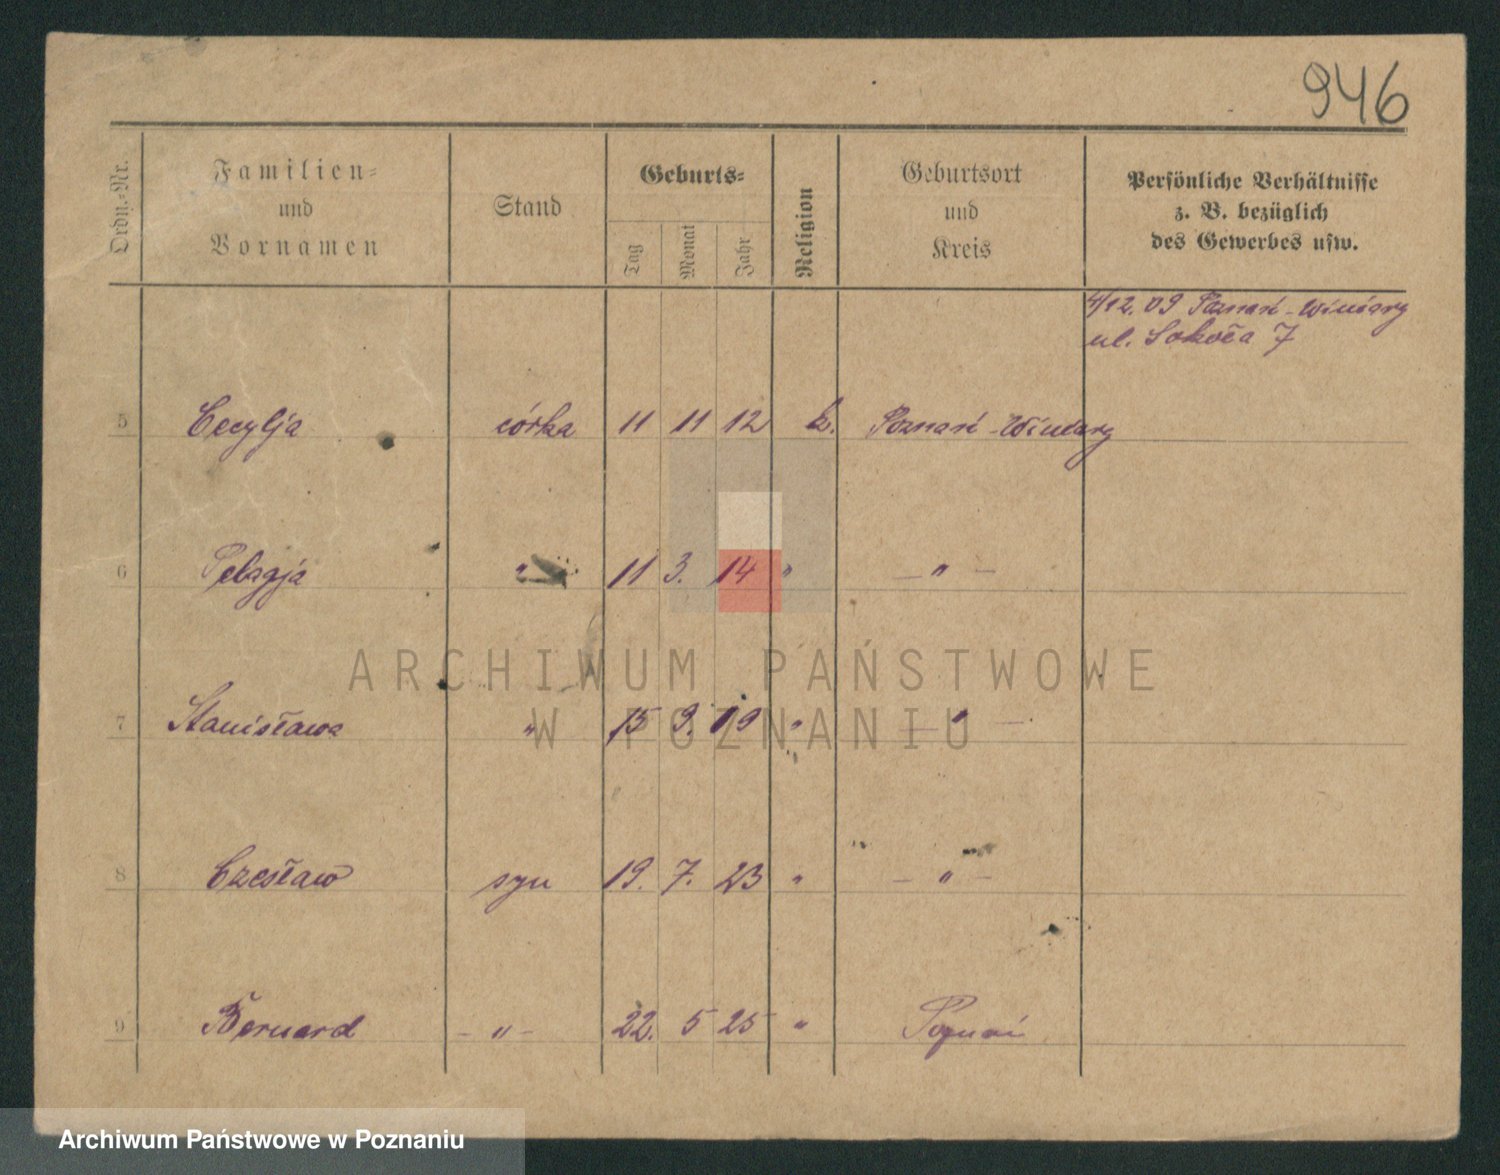 946
Ordn.-Nr.
Familien-
und
Vornamen
Stand
Geburts-
Tag
Monat
Jahr
Religion
Geburtsort
und
Kreis
Persönliche Verhältnisse
z. B. bezüglich
des Gewerbes usw.
4/12. 09 Poznań - Winiary
ul. Sokoła 7
5 Cecylja córka 11 11 12 k. Poznań - Winiary
6 Pelagja " 11 3. 14 " – " –
7 Stanisława " 15 9. 19 " – " –
8 Czesław syn 19. 7. 23 " – " –
9 Bernard – " – 22. 5 25 " Poznań
ARCHIWUM PAŃSTWOWE
W POZNANIU
Archiwum Państwowe w Poznaniu